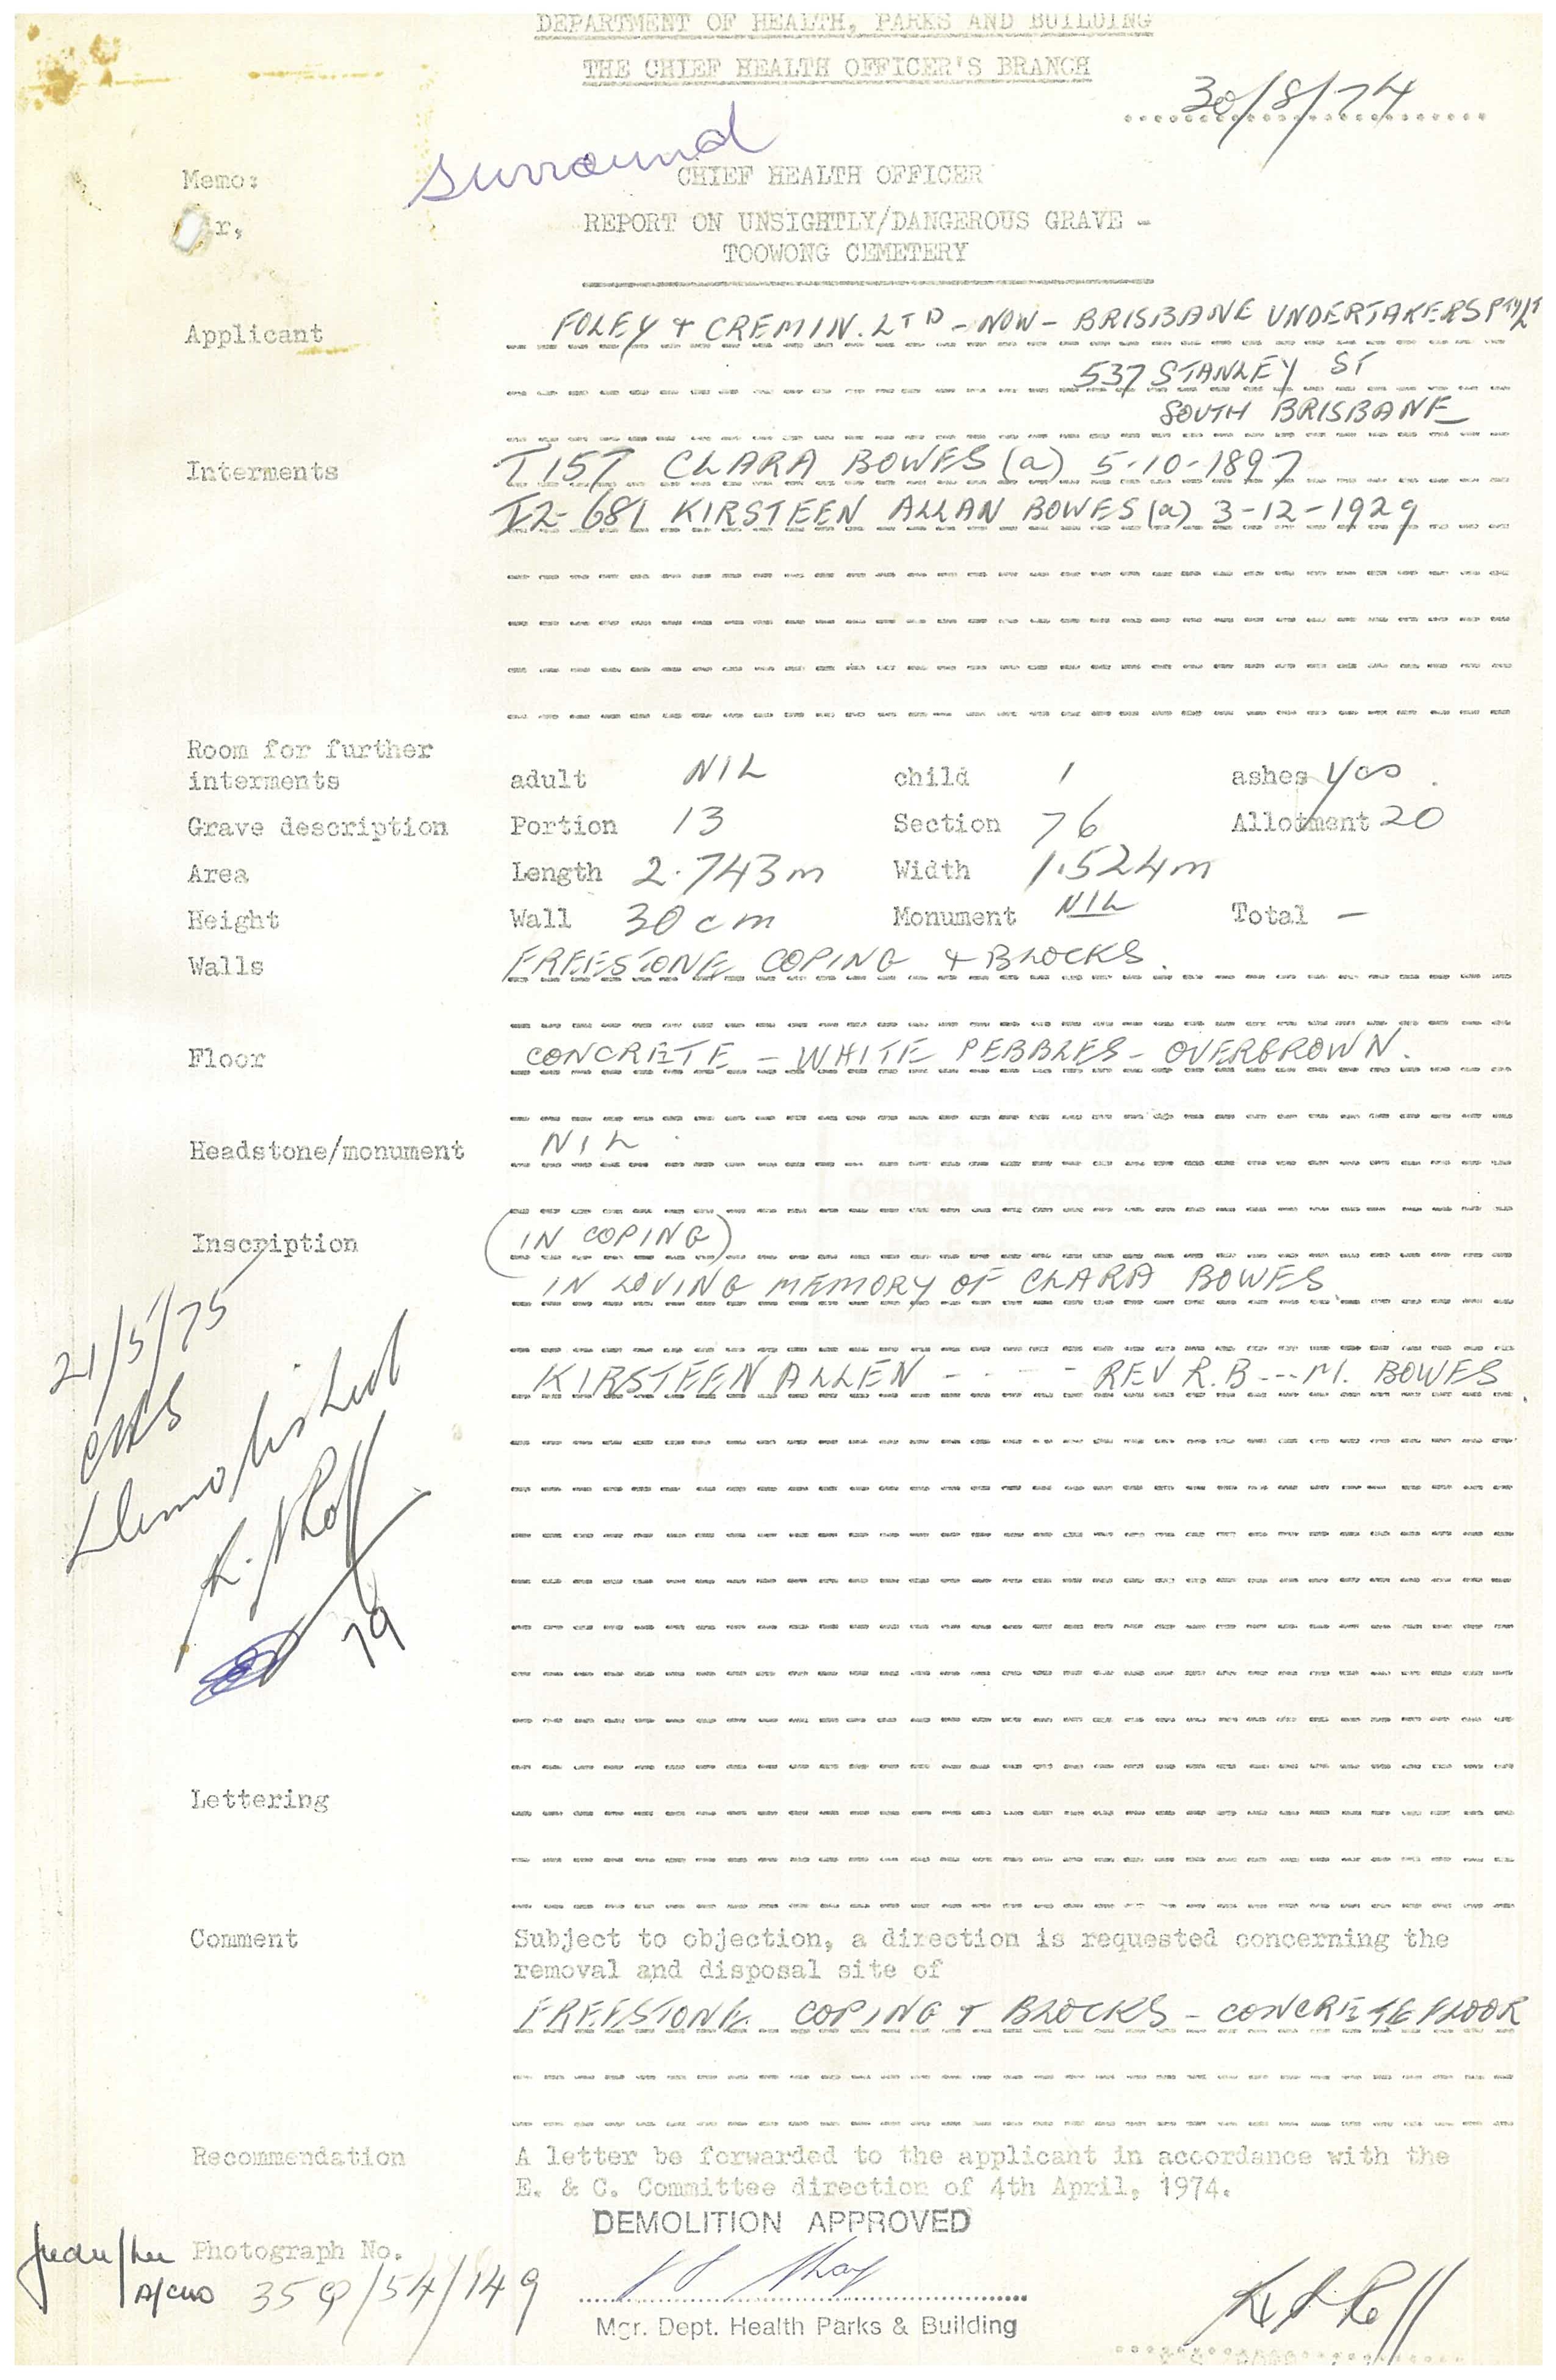 DEPARTMENT OF HEALTH, PARKS AND BUILDING
THE CHIEF HEALTH OFFICER'S BRANCH
30/8/74
surround
Memo: CHIEF HEALTH OFFICER
r,
REPORT ON UNSIGHTLY/DANGEROUS GRAVE -
TOOWONG CEMETERY
Applicant FOLEY & CREMIN. LTD - NOW - BRISBANE UNDERTAKERS PTY/LT
537 STANLEY ST
SOUTH BRISBANE
Interments T157 CLARA BOWES (a) 5-10-1897
T2-681 KIRSTEEN ALLAN BOWES (a) 3-12-1929
Room for further
interments adult NIL child 1 ashes Yes.
Grave description Portion 13 Section 76 Allotment 20
Area Length 2.743m Width 1.524m
Height Wall 30cm Monument NIL Total -
Walls FREESTONE COPING & BLOCKS.
Floor CONCRETE - WHITE PEBBLES - OVERGROWN.
Headstone/monument NIL.
Inscription (IN COPING)
IN LOVING MEMORY OF CLARA BOWES
KIRSTEEN ALLEN - - - - REV R.B---M. BOWES
21/5/75
Demolished
79
Lettering
Comment Subject to objection, a direction is requested concerning the
removal and disposal site of
FREESTONE COPING & BLOCKS - CONCRETE FLOOR
Recommendation A letter be forwarded to the applicant in accordance with the
E. & C. Committee direction of 4th April, 1974.
DEMOLITION APPROVED
Photograph No.
A/CHO 35Q/54/149
Mgr. Dept. Health Parks & Building